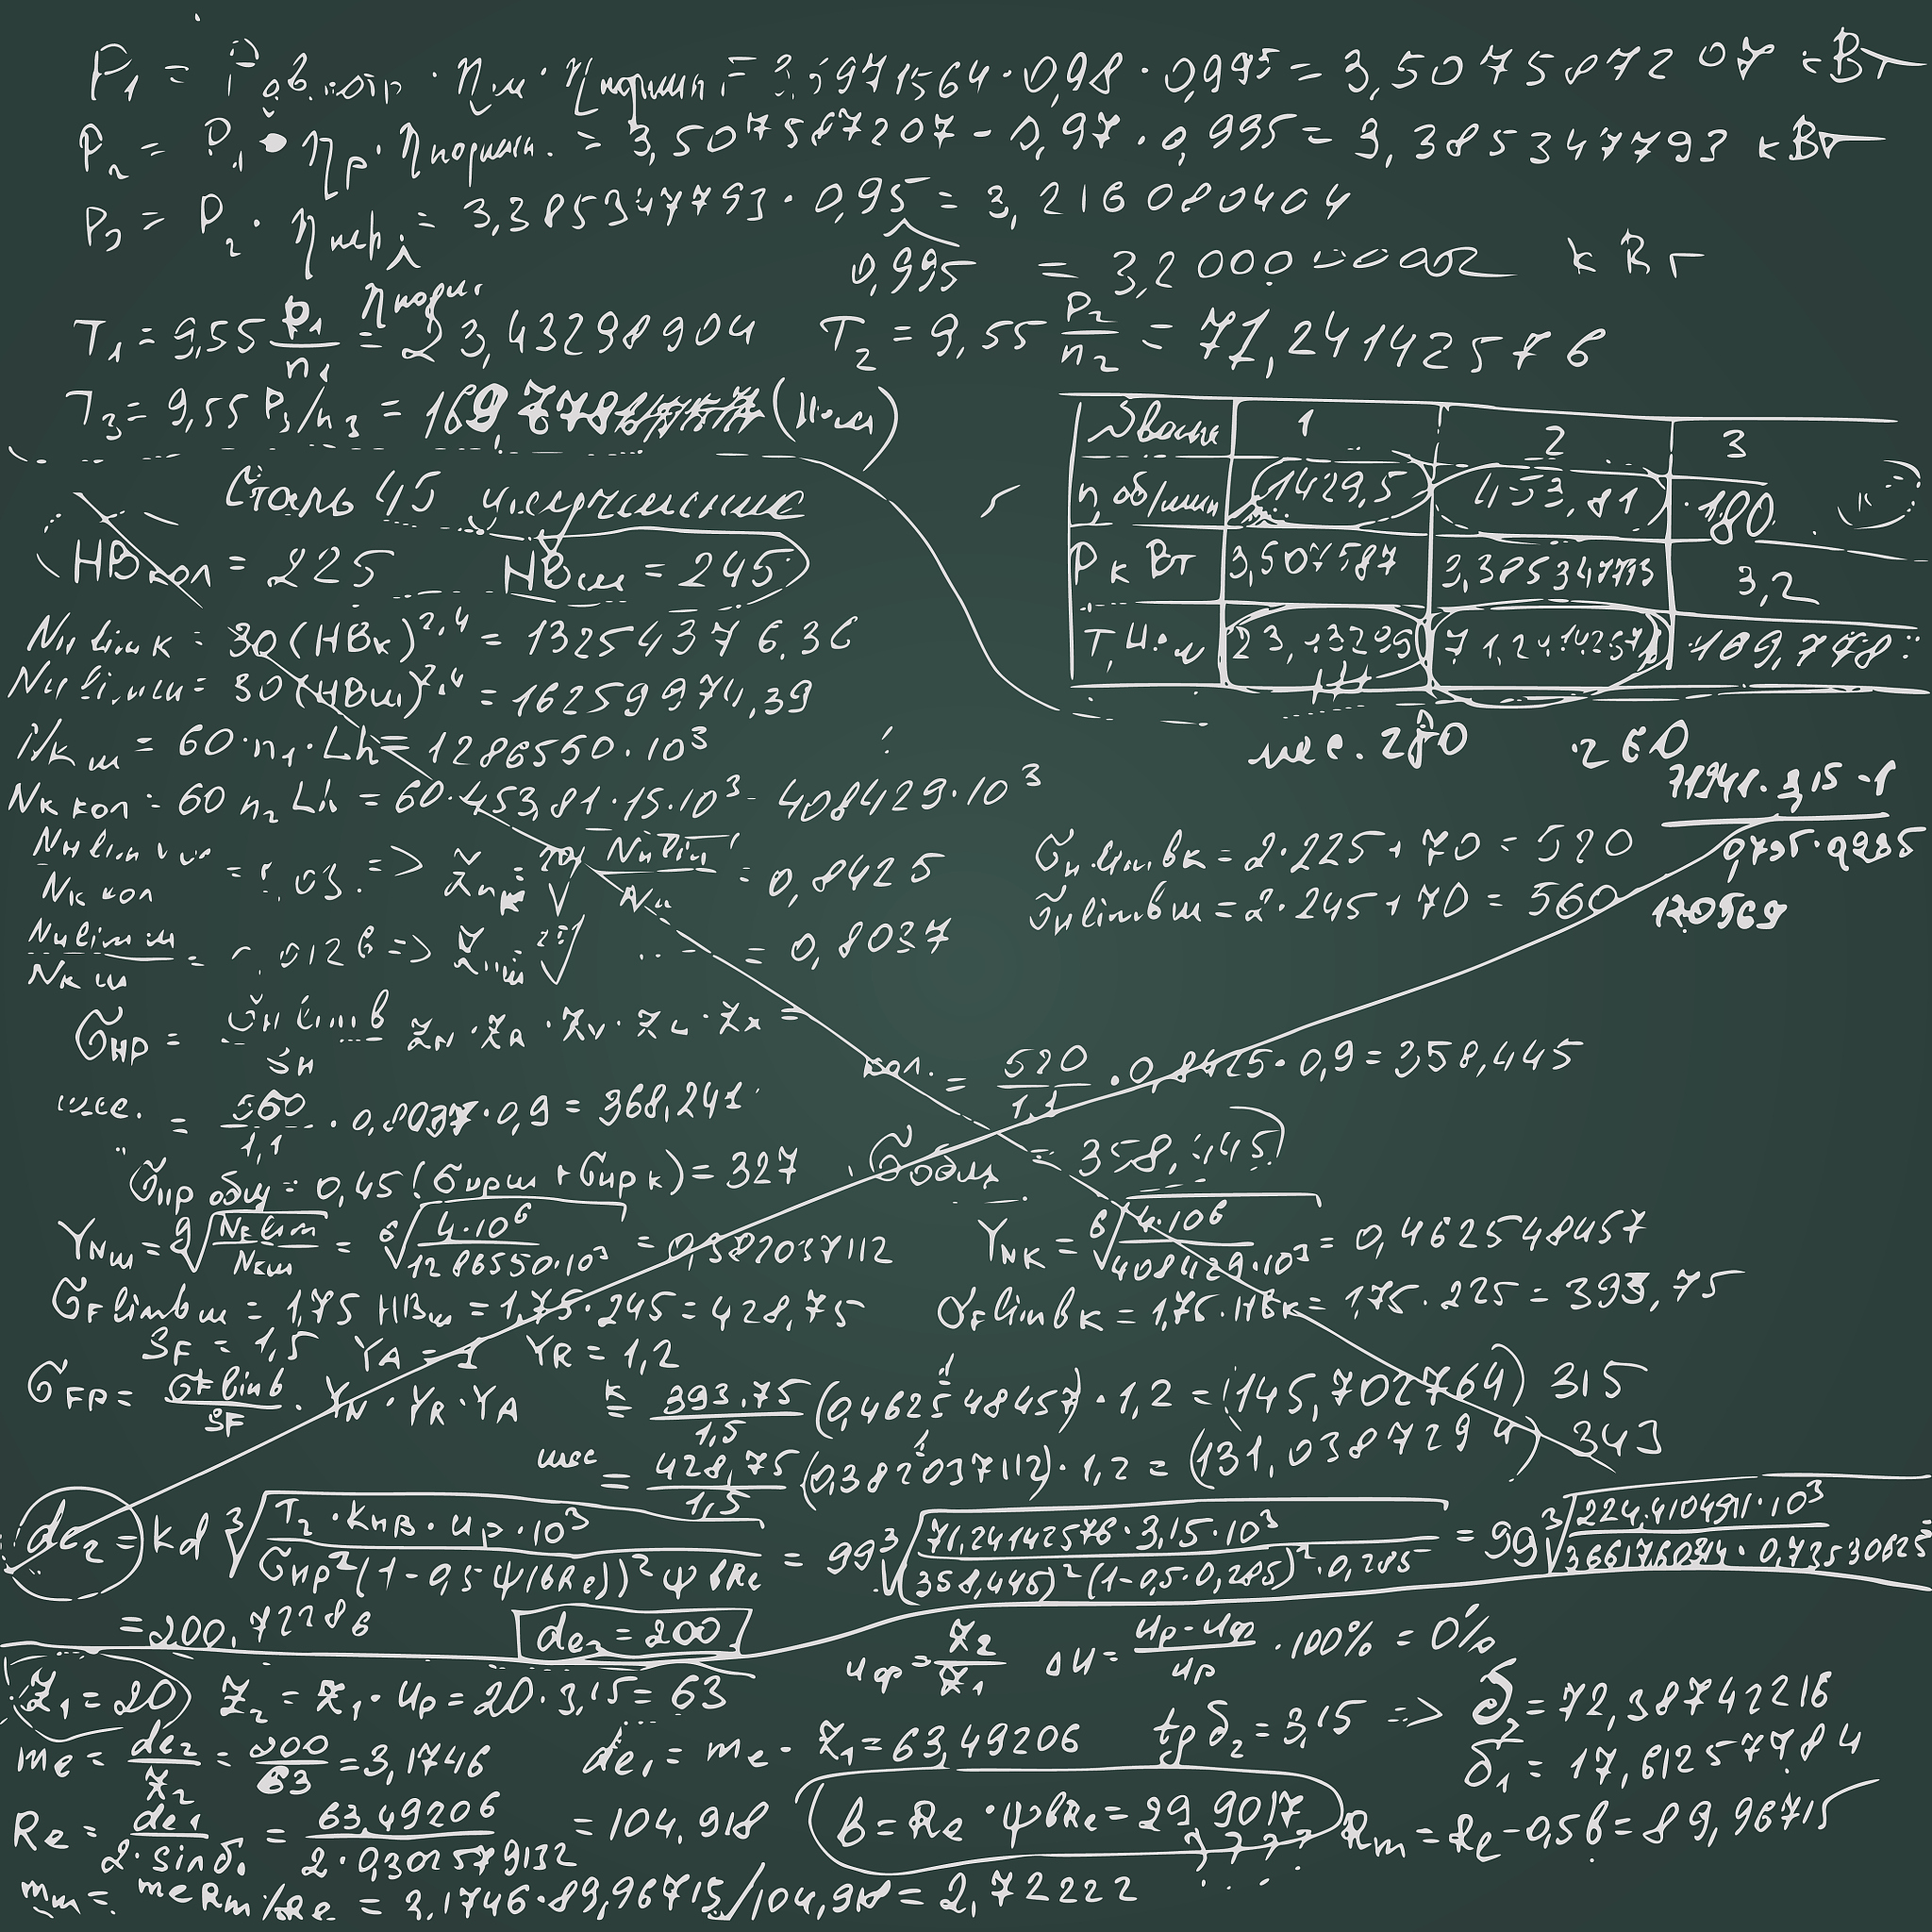 P₁ = P дв.потр · η м · η подшип = 3,5971564 · 0,98 · 0,995 = 3,507587207 кВт
P₂ = P₁ · ηр · η подшип. = 3,507587207 - 0,97 · 0,995 = 3,385347793 кВт
P₃ = P₂ · η = 3,385347793 · 0,95 = 3,216080404
0,995 = 3,2000000 кВт
η подш.
T₁ = 9,55 P₁/n₁ = 23,43298904 T₂ = 9,55 P₂/n₂ = 71,2414142576
T₃ = 9,55 P₃/n₃ = 169,778 (Н·м)
1 2 3
n об/мин 1429,5 453,81 180
P кВт 3,507587 3,385347793 3,2
T, Н·м 23,43299 71,24142576 169,778
Сталь 45 улучшение
HB кол = 225 HB ш = 245
N н lim к = 30 (HBк)^2,4 = 13254376,36
N н lim ш = 30 (HBш)^2,4 = 16259974,39
Nк ш = 60 · n₁ · Lh = 1286550 · 10³
шес. 280 260
Nк кол = 60 n₂ Lh = 60 · 453,81 · 15 · 10³ = 408429 · 10³
71241 · 3,15
N н lim / Nк кол = 0,03 => Z nк = ²⁰√ N н lim / Nк = 0,8425
σн lim b к = 2 · 225 + 70 = 520
σн lim b ш = 2 · 245 + 70 = 560
120569
N н lim ш / Nк ш = 0,0126 => Z nш = ²⁰√ ... = 0,8037
σHP = σн lim b / Sн Z N · Z R · Z V · Z L · Z X =
кол. = 520/1,1 · 0,8425 · 0,9 = 358,445
шес. = 560/1,1 · 0,8037 · 0,9 = 368,241
σHP общ = 0,45 (σHP ш + σHP к) = 327 σ общ = 358,445
Y Nш = ⁹√ N F lim / N кш = ⁶√ 4·10⁶ / 1286550·10³ = 0,382037112 Y NK = ⁶√ 4·10⁶ / 408429·10³ = 0,462548457
σF lim b ш = 1,75 HBш = 1,75 · 245 = 428,75 σF lim b к = 1,75 · HBк = 1,75 · 225 = 393,75
SF = 1,5 YA = 1 YR = 1,2
σFP = σF lim b / SF · YN · YR · YA к = 393,75/1,5 (0,462548457) · 1,2 = (145,702764) 315
шес = 428,75/1,5 (0,382037112) · 1,2 = (131,0387294) 343
de₂ = kd ³√ T₂ · Kнв · uр · 10³ / σHP² (1 - 0,5 ψ(bRe))² ψ bRe = 99 ³√ 71,24142576 · 3,15 · 10³ / (358,445)² (1-0,5·0,285)² · 0,285 = 99 ³√ 224,4104911 · 10³ / 36617,60914 · 0,73530625
= 200,72286 de₂ = 200
uф = Z₂/Z₁ Δu = uр - uф / uр · 100% = 0%
Z₁ = 20 Z₂ = Z₁ · uр = 20 · 3,15 = 63
me = de₂/Z₂ = 200/63 = 3,1746 de₁ = me · Z₁ = 63,49206 tg δ₂ = 3,15 => δ₂ = 72,38742216
δ₁ = 17,61257784
Re = de₁ / 2 · sin δ₁ = 63,49206 / 2 · 0,302579132 = 104,918 b = Re · ψbRe = 29,9017 Rm = Re - 0,5b = 89,96715
????
mm = me Rm/Re = 3,1746 · 89,96715/104,918 = 2,72222